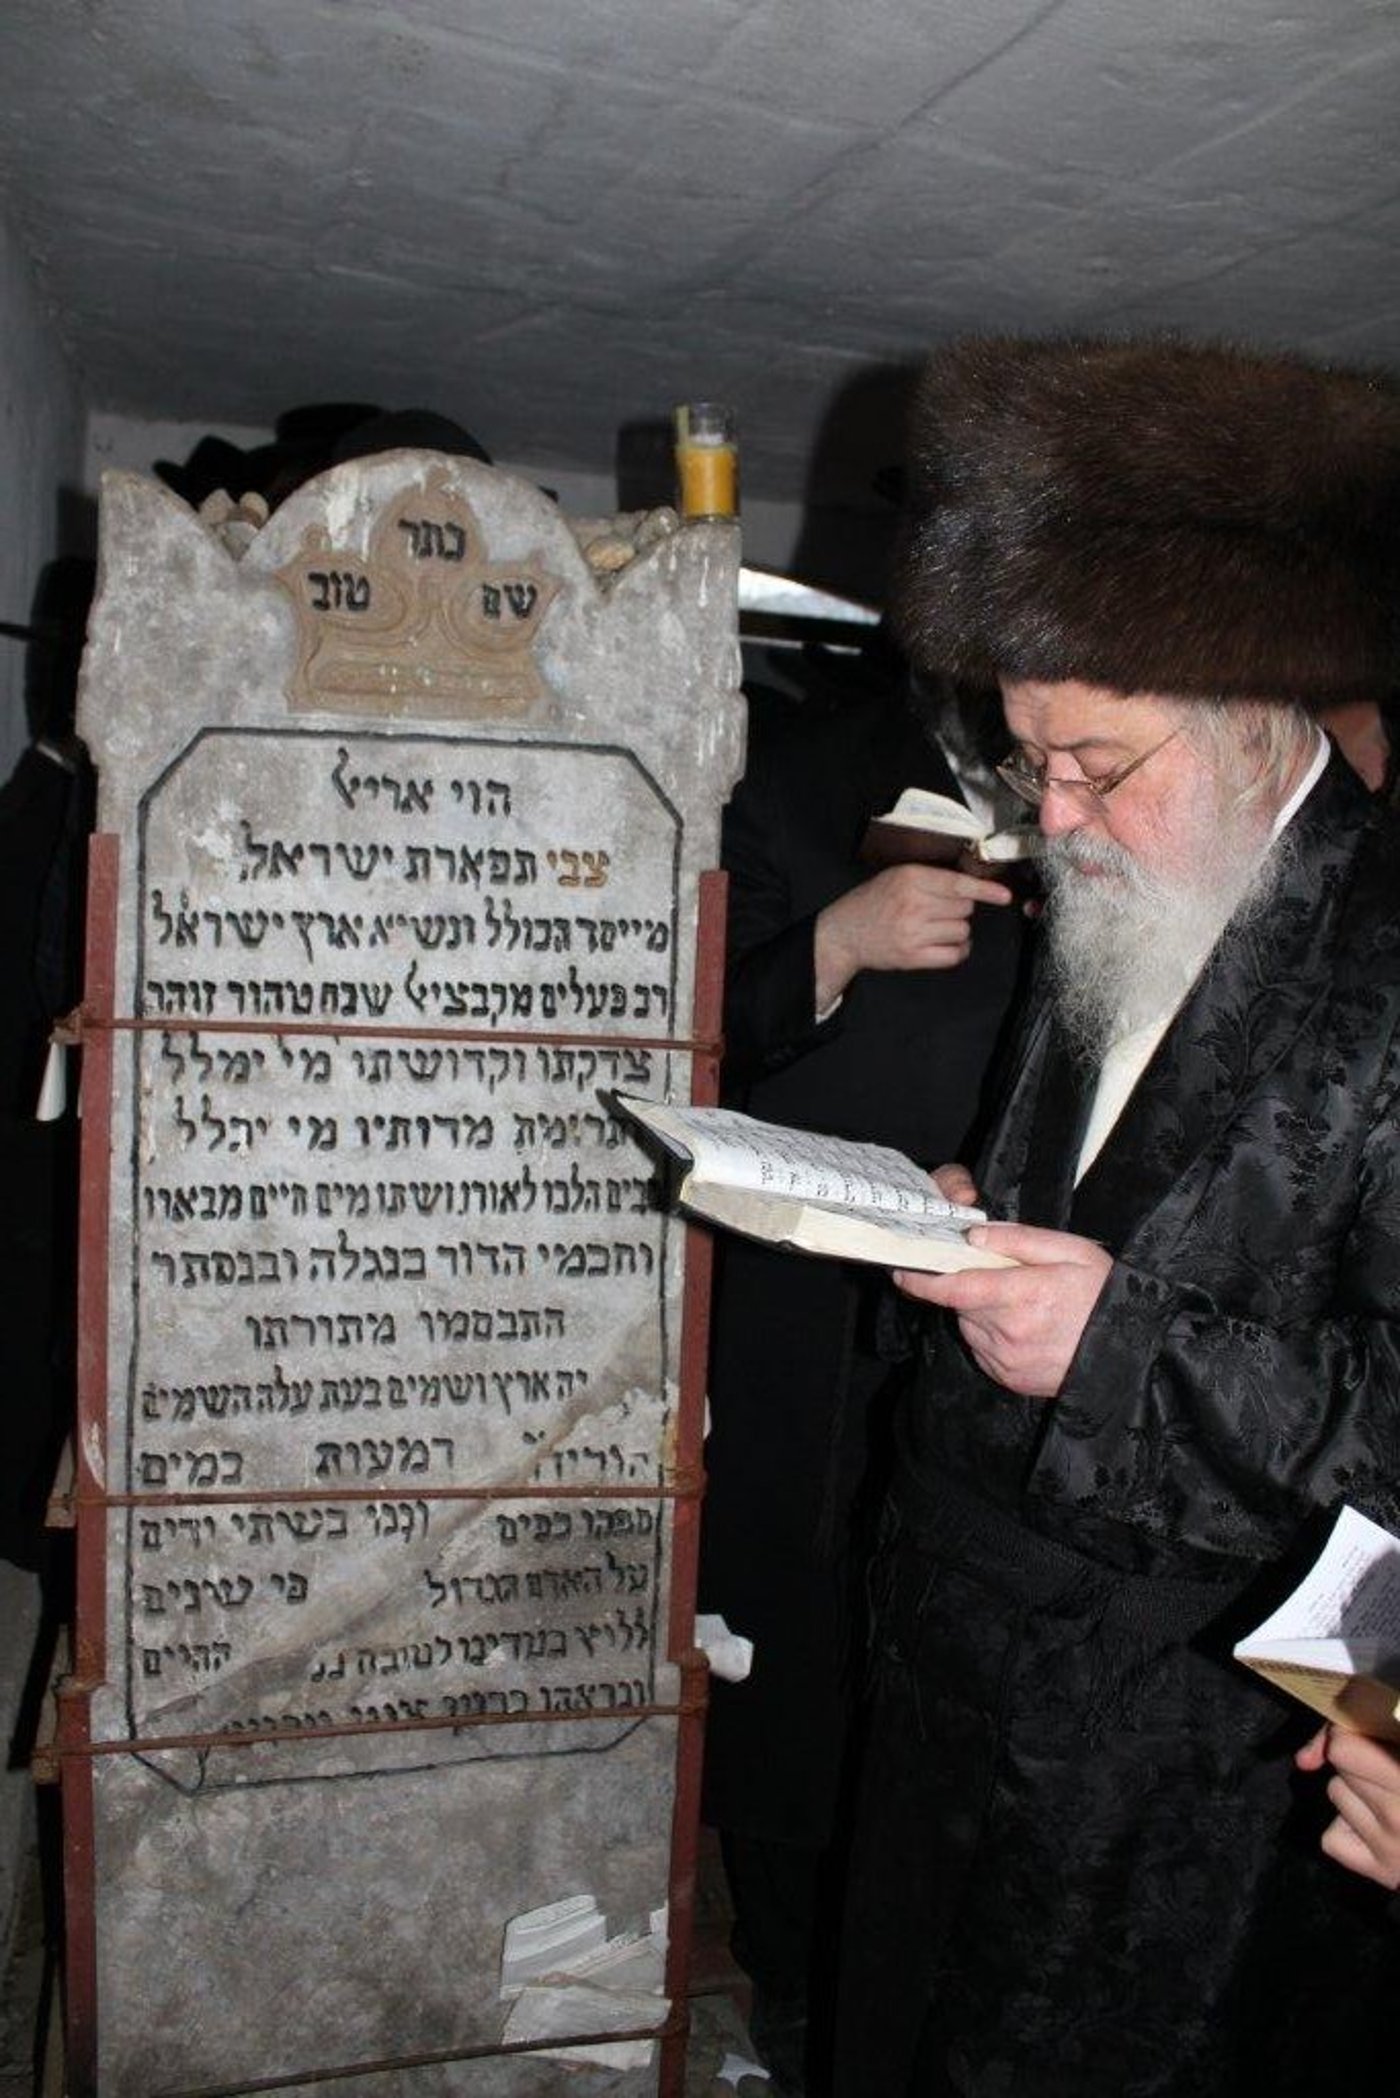 כתר
שם טוב
הוי אריאל
צבי תפארת ישראל
מייסד הכולל ונשיא ארץ ישראל
רב פעלים מקבציאל שבח טהור זוהר
צדקתו וקדושתו מי ימלל
מדותיו מי יהלל
הלכו לאורו ושתו מים חיים מבארו
וחכמי הדור בנגלה ובנסתר
התבסמו מתורתו
יה ארץ ושמים בעת עלה השמים
דמעות כמים
ספקו כפים ונגו בשתי ידים
על האדם הגדול פי שנים
לטובה החיים